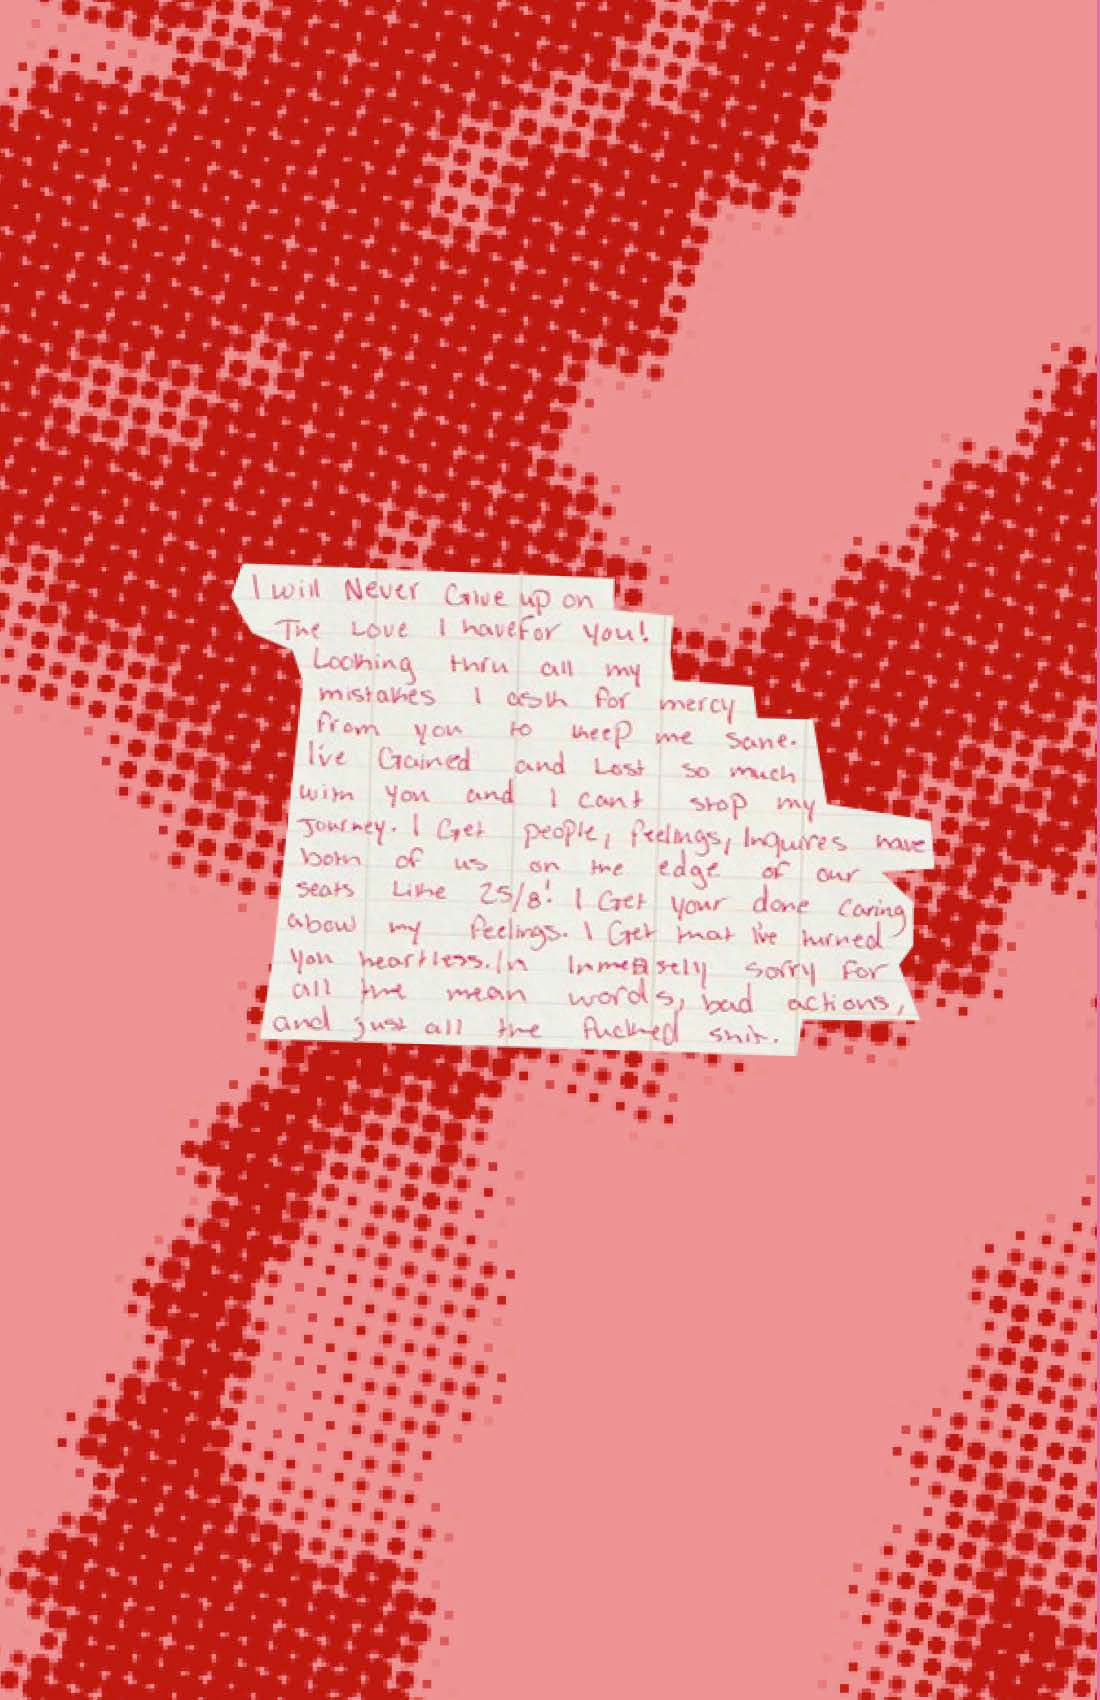 I will Never Give up on
The Love I have For you!
Looking thru all my
mistakes I ask for mercy
from you to keep me sane.
I've Gained and Lost so much
with you and I cant stop my
Journey. I Get people, feelings, Inquires have
both of us on the edge of our
seats Like 25/8! I Get your done caring
about my feelings. I Get that I've turned
you heartless. In Inmensely sorry for
all the mean words, bad actions,
and just all the fucked shit.